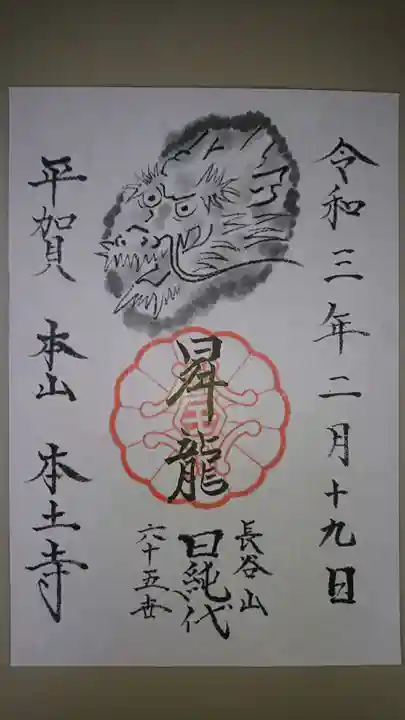 令和三年二月十九日
昇龍
長谷山
日純代
六十五世
平賀 本山 本土寺